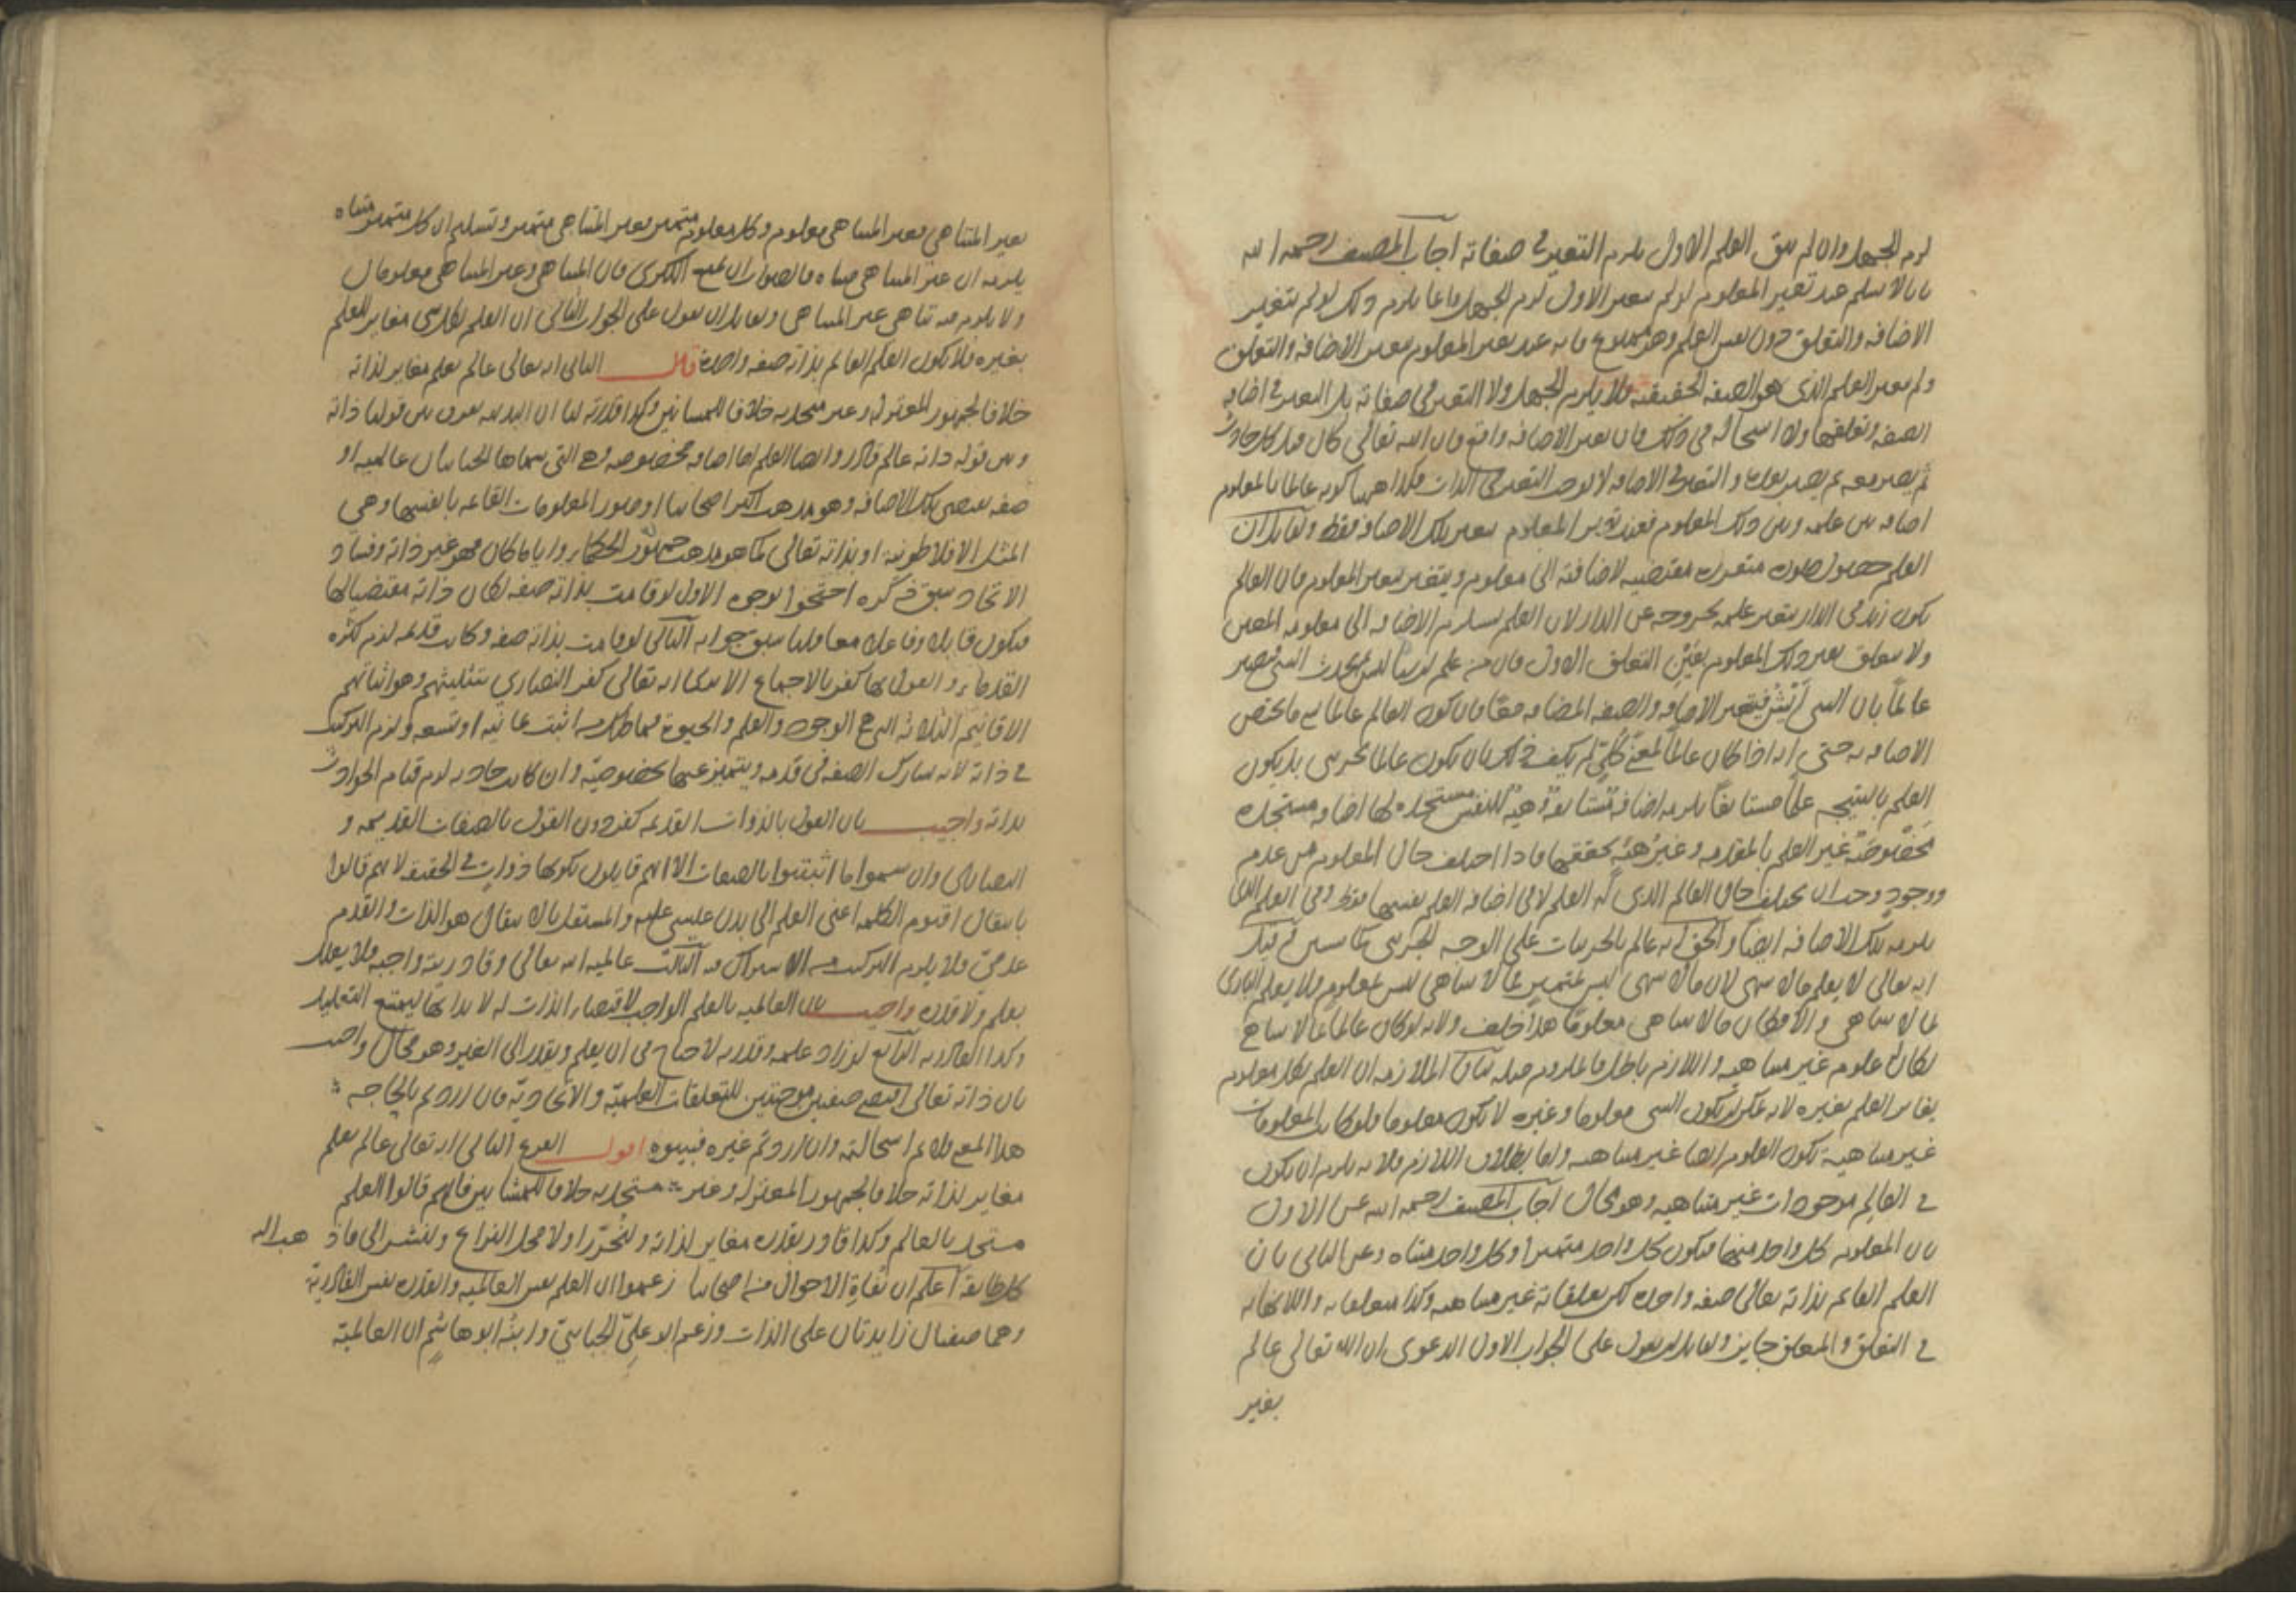 لزم الجهل وان لم يبق العلم الاول يلزم التغير في صفاته اجاب المصنف رحمه الله
بانا لا نسلم عند تغير المعلوم لو لم يتغير الاول لزم الجهل وانما يلزم ذلك لو لم يتغير
الاضافة والتعلق دون نفس العلم وهو ممنوع فانه عند تغير المعلوم يتغير الاضافة والتعلق
ولم يتغير العلم الذي هو الصفة الحقيقية فلا يلزم الجهل ولا التغير في صفاته بل التغير في اضافة
الصفة وتعلقها ولا استحالة في ذلك فان تغير الاضافة واقع فان الله تعالى كان قبل كل حادث
ثم يصير معه ثم يصير بعده والتغير في الاضافة لا يوجب التغير في الذات فكذا ههنا كونه عالما بالمعلوم
اضافة بين علمه وبين ذلك المعلوم فعند تغير المعلوم يتغير تلك الاضافة فقط ولقائل ان
العلم حصول صورة متقررة مقتضية لاضافته الى معلوم ويتغير بتغير المعلوم فان العالم
بكون زيد في الدار يتغير علمه بخروجه عن الدار لان العلم يستلزم الاضافة الى معلومه المعين
ولا يتعلق بغير ذلك المعلوم بعين التعلق الاول فان من علم ان شيئا ليس ثم يحدث الشي فيصير
عالما بان الشي ايس فيتغير الاضافة والصفة المضافة معا فان كون العالم عالما بشي ما يختص
الاضافة به حتى انه اذا كان عالما لمعنى كلي لم يكف ذلك بان يكون عالما بجزئي بل يكون
العلم بالنتيجة علما مستأنفا يلزمه اضافة مستأنفة وهيئة للنفس مستجدة لها اضافة مستجدة
مخصوصة غير العلم بالمقدمة وغير هيئة تحققها فاذا اختلف حال المعلوم من عدم
ووجود وجب ان يختلف حال العالم الذي له العلم لا في اضافة العلم نفسها فقط وفي العلم الذي
يلزمه تلك الاضافة ايضا والحق انه عالم بالجزئيات على الوجه الجزئي كما سبق قيل
انه تعالى لا يعلم ما لا يتناهى لان ما لا يتناهى ليس بمتميز فما لا يتناهى ليس بمعلوم فلا يعلم الباري
ما لا يتناهى والا لكان ما لا يتناهى معلوما هذا خلف ولانه لو كان عالما بما لا يتناهى
لكان له علوم غير متناهية واللازم باطل فالملزوم مثله بيان الملازمة ان العلم بكل معلوم
يغاير العلم بغيره لانه يمكن ان يكون الشي معلوما وغيره لا يكون معلوما ولو كان المعلومات
غير متناهية تكون العلوم ايضا غير متناهية واما بطلان اللازم فلانه يلزم ان يكون
في العالم موجودات غير متناهية وهو محال اجاب المصنف رحمه الله عن الاول
بان المعلوم كل واحد منها فيكون كل واحد متميزا وكل واحد متناه وعن الثاني بان
العلم القائم بذاته تعالى صفة واحدة لكن تعلقاته غير متناهية وكذا متعلقاته واللانهاية
في التعلق والمتعلق جايز ولقائل ان يقول على الجواب الاول الدعوى ان الله تعالى عالم
بغير
بغير المتناهي فغير المتناهي معلوم وكل معلوم متميز فغير المتناهي متميز وتسليم ان كل متميز متناه
يلزمه ان غير المتناهي متناه فالصواب ان يمنع الكبرى فان المتناهي وغير المتناهي معلومان
ولا يلزم منه تناهي غير المتناهي ولقائل ان يقول على الجواب الثاني ان العلم بكل شي مغاير للعلم
بغيره فلا يكون العلم القائم بذاته صفة واحدة قال الثاني انه تعالى عالم بعلم مغاير لذاته
خلافا لجمهور المعتزلة وغير متحد به خلافا للمشائين وكذا قدرته لنا ان البديهة تفرق بين قولنا ذاته
وبين قوله ذاته عالم قادر وايضا العلم اما اضافة مخصوصة وهي التي سماها الجبائيان عالمية او
صفة تقتضي تلك الاضافة وهو مذهب اكثر اصحابنا او صور المعلومات القائمة بانفسها وهي
المثل الافلاطونية او بذاته تعالى كما هو مذهب جمهور الحكماء وايا ما كان فهو غير ذاته وفساد
الاتحاد سبق ذكره احتجوا بوجوه الاول لو قامت بذاته صفة لكان ذاته مقتضيا لها
فيكون قابلا وفاعلا معا قلنا سبق جوابه الثاني لو قامت بذاته صفة وكانت قديمة لزم كثرة
القدماء والقول بها كفر بالاجماع الا يرى انه تعالى كفر النصارى بتثليثهم وهو اثباتهم
الاقانيم الثلاثة التي هي الوجود والعلم والحيوة فما ظنك بمن اثبت ثمانية او تسعة ولزم التركيب
في ذاته لانه يشارك الصفة في قدمه ويتميز عنها بخصوصية وان كانت حادثة لزم قيام الحوادث
بذاته واجيب بان القول بالذوات القديمة كفر دون القول بالصفات القديمة و
النصارى وان سموا ما اثبتوا بالصفات الا انهم قايلون بكونها ذوات في الحقيقة لانهم قالوا
بانتقال اقنوم الكلمة اعني العلم الى بدن عيسى عليه والمستقل بالانتقال هو الذات والقدم
عدمي فلا يلزم التركيب من الاشتراك فيه الثالث عالمية الله تعالى وقادريته واجبة فلا يعلل
بعلم ولا قدرة واجيب بان العالمية بالعلم الواجب لاقتضاء الذات له لا بذاتها ليمتنع التعليل
وكذا القادرية الرابع لو زاد علمه وقدرته لاحتاج في ان يعلم ويقدر الى الغير وهو محال واجيب
بان ذاته تعالى اقتضى صفتين موجبتين للتعلقات العلمية والايجادية فان اردتم بالحاجة
هذا المعنى فلا نم استحالته وان اردتم غيره فبينوه اقول الفرع الثاني انه تعالى عالم بعلم
مغاير لذاته خلافا لجمهور المعتزلة وغير متحد به خلافا للمشائين فانهم قالوا العلم
متحد بالعالم وكذا قادر بقدرة مغاير لذاته ولنحرر اولا محل النزاع ولنشر الى ما ذهب اليه
كل طايفة اعلم ان نفاة الاحوال من اصحابنا زعموا ان العلم نفس العالمية والقدرة نفس القادرية
وهما صفتان زايدتان على الذات وزعم ابو علي الجبائي وابنه ابو هاشم ان العالمية